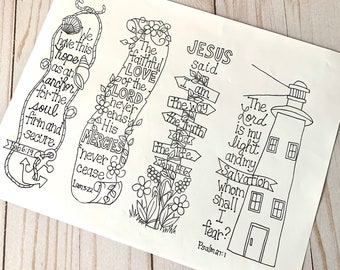 We
have this
hope
as an
anchor
for the
soul
firm and
secure
Heb. 6:19
The
faithful
LOVE
of the
LORD
never
ends!
His
MERCIES
never
cease
Lam 3:22
JESUS
said
I am
the way
the truth
and
the life
The
Lord
is my
light
and my
Salvation
whom
shall
I
fear?
Psalm 27:1